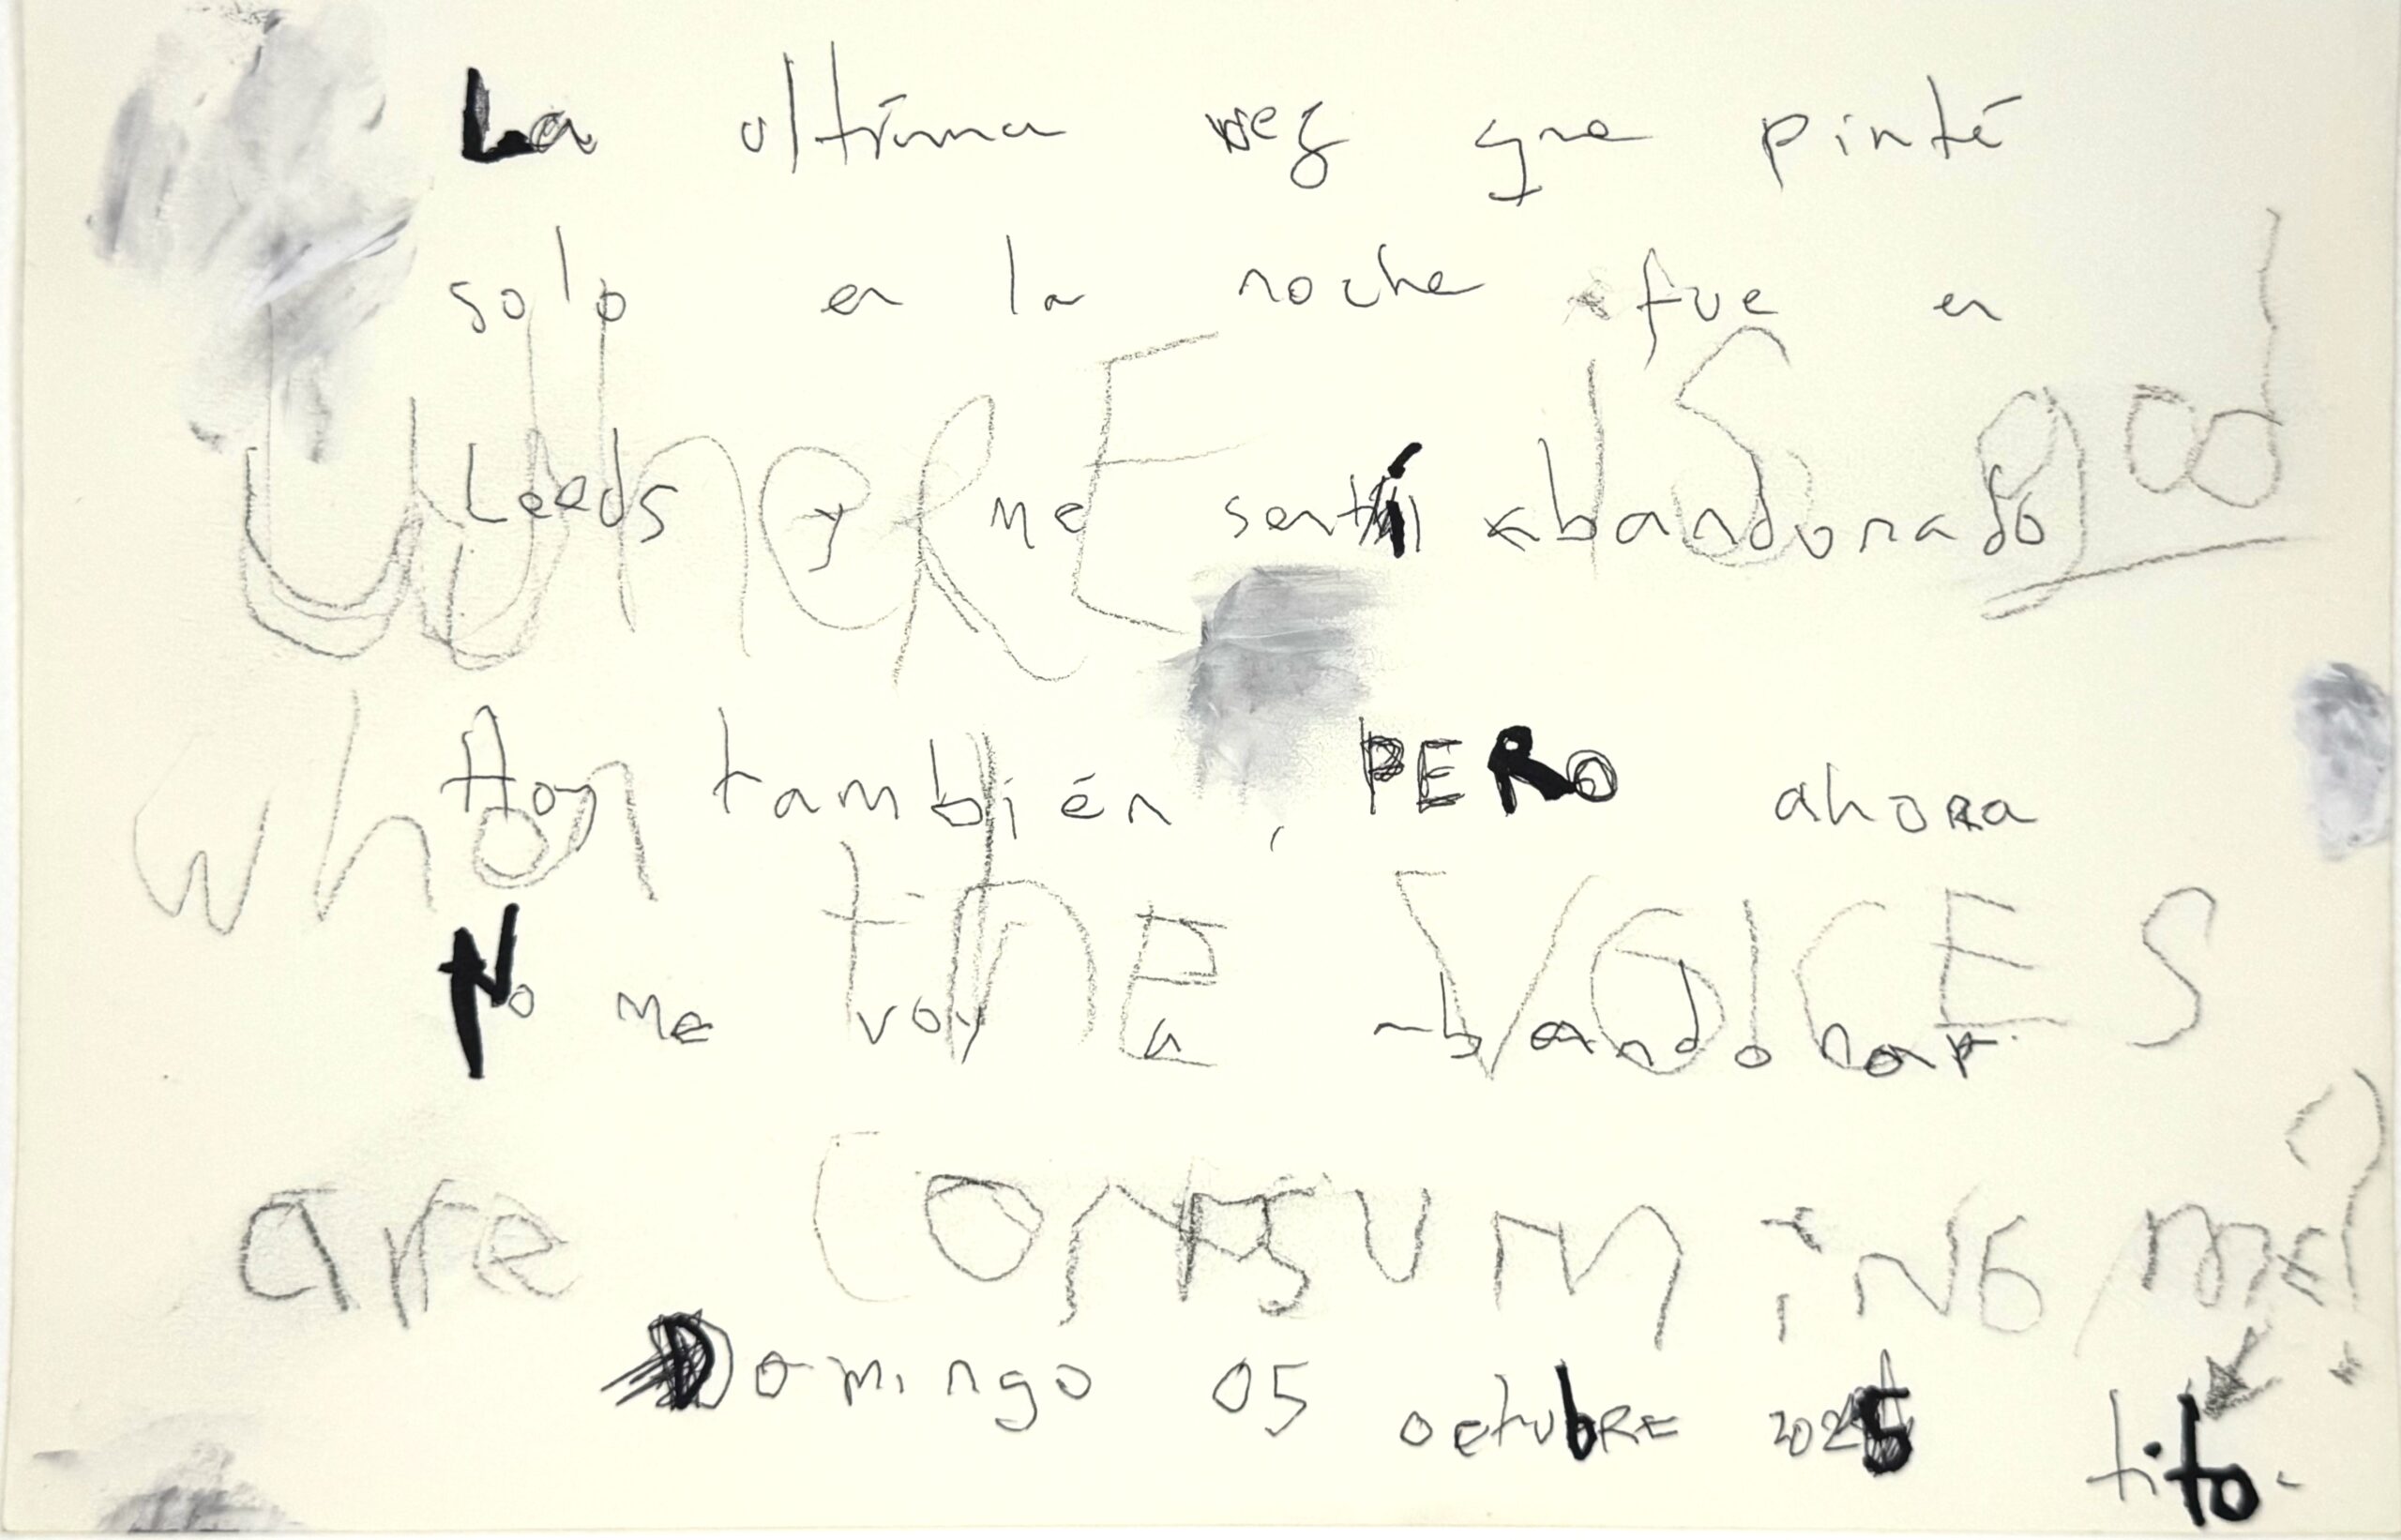 La ultima vez que pinté
solo en la noche fue en
WhERE IS god
Leeds y me sentí abandonado
Hoy también, PERO ahora
when thE VOICES
No me voy a abandonar.
are CONSUMiNG me?
Domingo 05 octubRE 2025
tito.